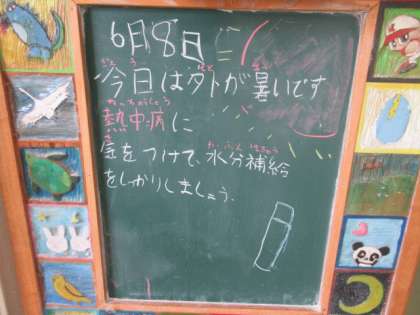 6月8日
今日は外が暑いです
熱中病に
気をつけて、水分補給
をしかりしましょう.